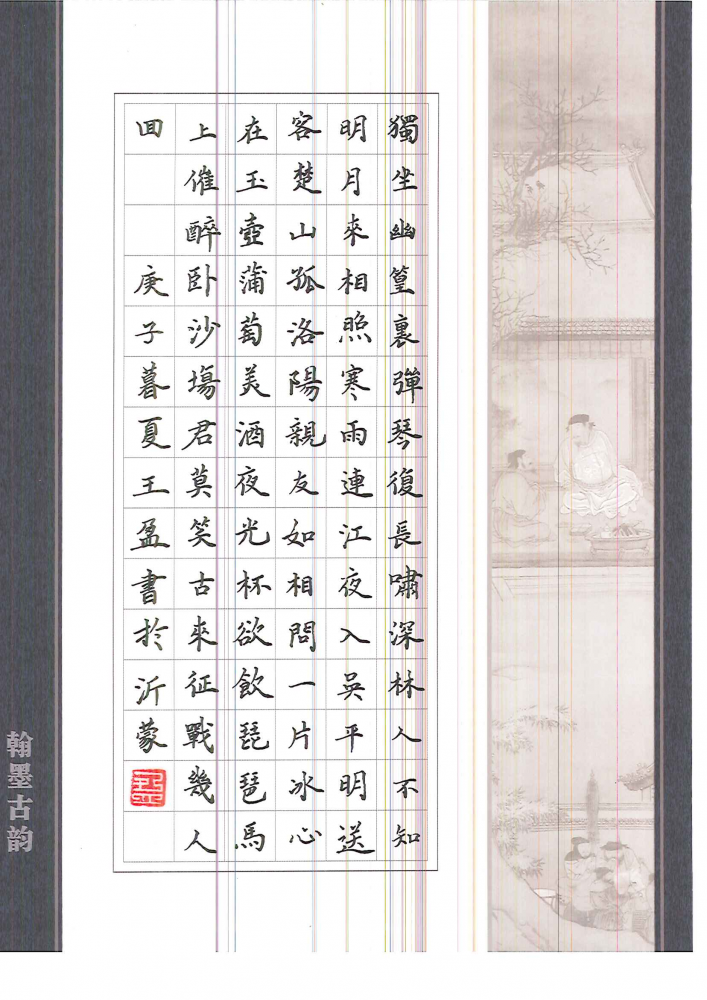 獨坐幽篁裏彈琴復長嘯深林人不知
明月來相照寒雨連江夜入吳平明送
客楚山孤洛陽親友如相問一片冰心
在玉壺蒲萄美酒夜光杯欲飲琵琶馬
上催醉卧沙場君莫笑古來征戰幾人
回 庚子暮夏王盈書於沂蒙
翰墨古韵